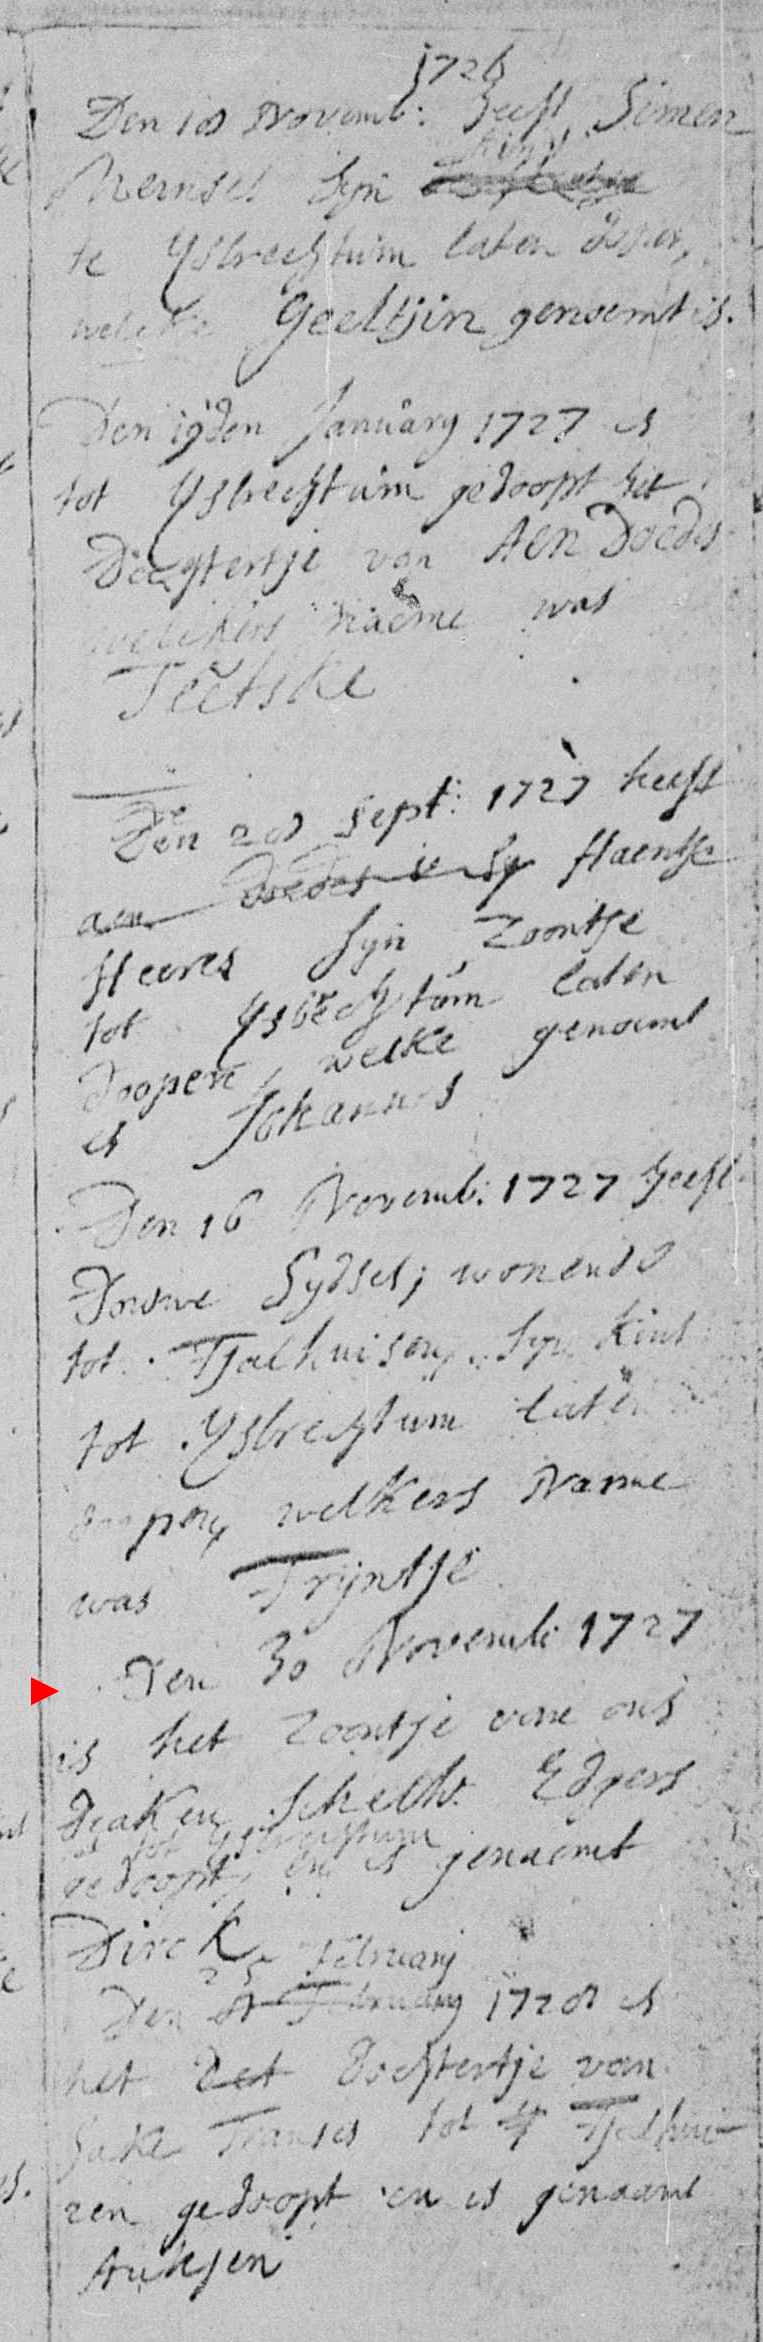 1726
Den 18 Novemb: heeft Simen
Mernses syn kint
te Ysbrechtum laten dopen,
welcke Geeltjin genoemt is.
Den 19den January 1727 is
tot Ysbrechtum gedoopt het
Dochtertje van Aen Doedes
welckers naeme was
Teetske
Den 28 Sept: 1727 heeft
aen Doedes is sy Haentse
Heeres syn Zoontje
tot Ysbrechtum laten
doopen, welke genoemt
is Johannes
Den 16 Novemb: 1727 heeft
Douwe Sydses, wonende
tot Tjalhuisen, syn kint
tot Ysbrechtum laten
doopen, welkers Name
was Trijntje
Den 30 Novemb: 1727
is het Zoontje van ons
Diaken Schelte Edgers
tot Ysbrechtum
gedoopt, en is genaemt
Dirck
25 February
Den 8 February 1728 is
het Det dochtertje van
Sake Teunses tot Tjalhui-
zen gedoopt en is genaamt
Aukjen